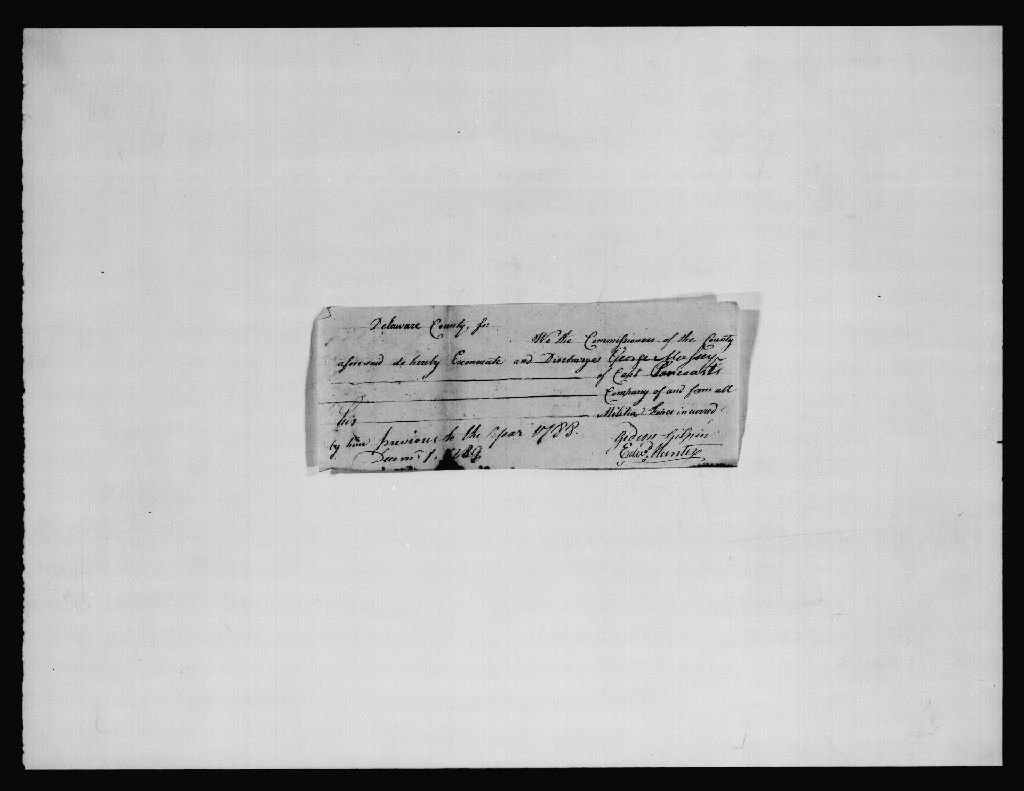 Delaware County, ss:
We the Commissioners of the County
aforesaid do hereby Exonerate and Discharge George
of Capt
Company of and from all
his Militia Fines incurred
by him previous to the Year 1788.
Decemr. 1. 1789 Gideon Gilpin
Edwd. Hunter